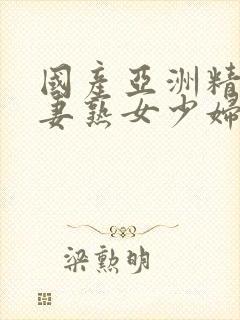 國產亞洲精
妻熟女少婦
梁勲明